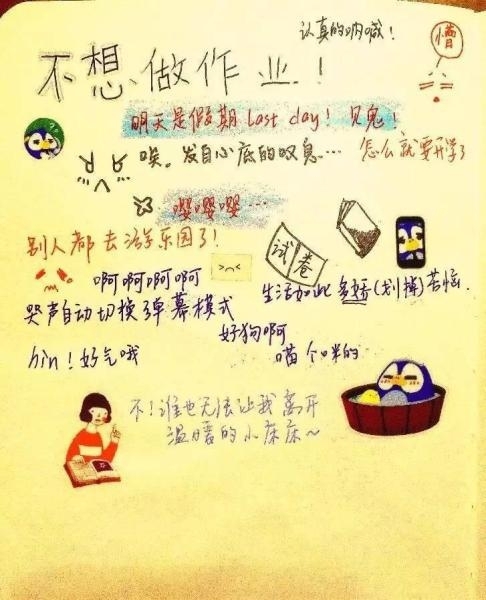 认真的呐喊！
懵
不想做作业！
明天是假期last day！见鬼！
唉。发自心底的叹息…
怎么就要开学了
嘤嘤嘤…
别人都去游乐园了！
试卷
啊啊啊啊啊
哭声自动切换弹幕模式
生活如此多娇(划掉)苦恼.
好狗啊
hin！好气哦
喵个咪的
不！谁也无法让我离开
温暖的小床床～